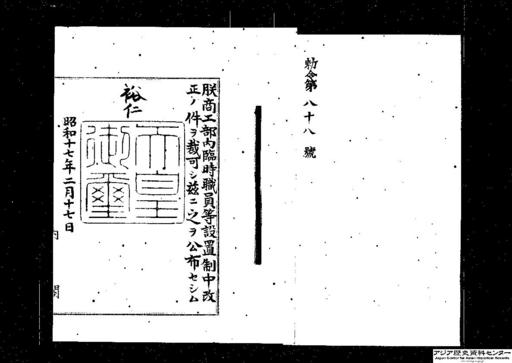 勅令第八十八號
朕商工部内臨時職員等設置制中改
正ノ件ヲ裁可シ茲ニ之ヲ公布セシム
裕仁
天皇
御璽
昭和十七年二月十七日
内閣
アジア歴史資料センター
Japan Center for Asian Historical Records